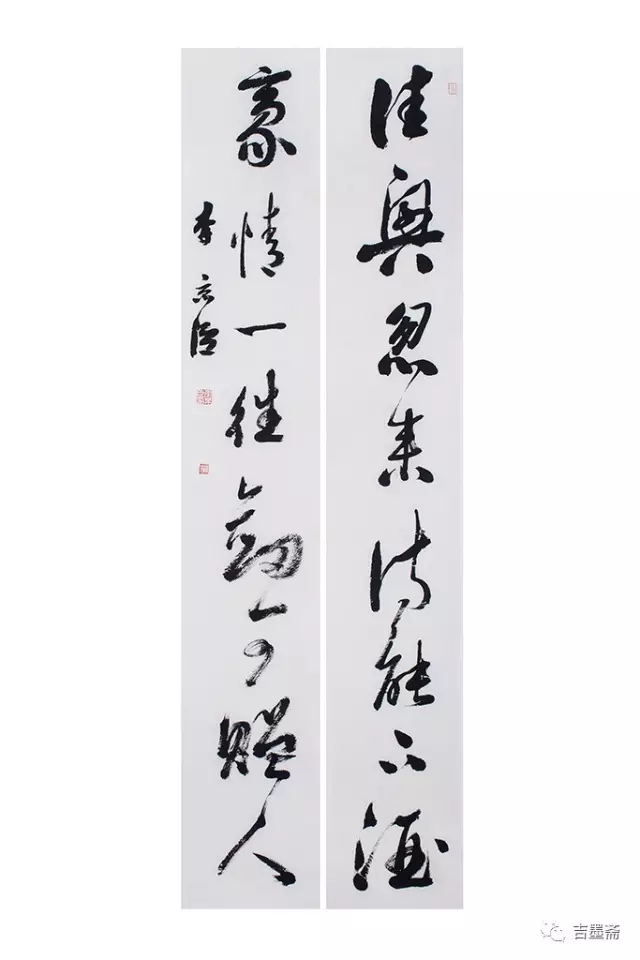 佳興忽來詩能下酒
豪情一往劍可贈人
吉墨斋